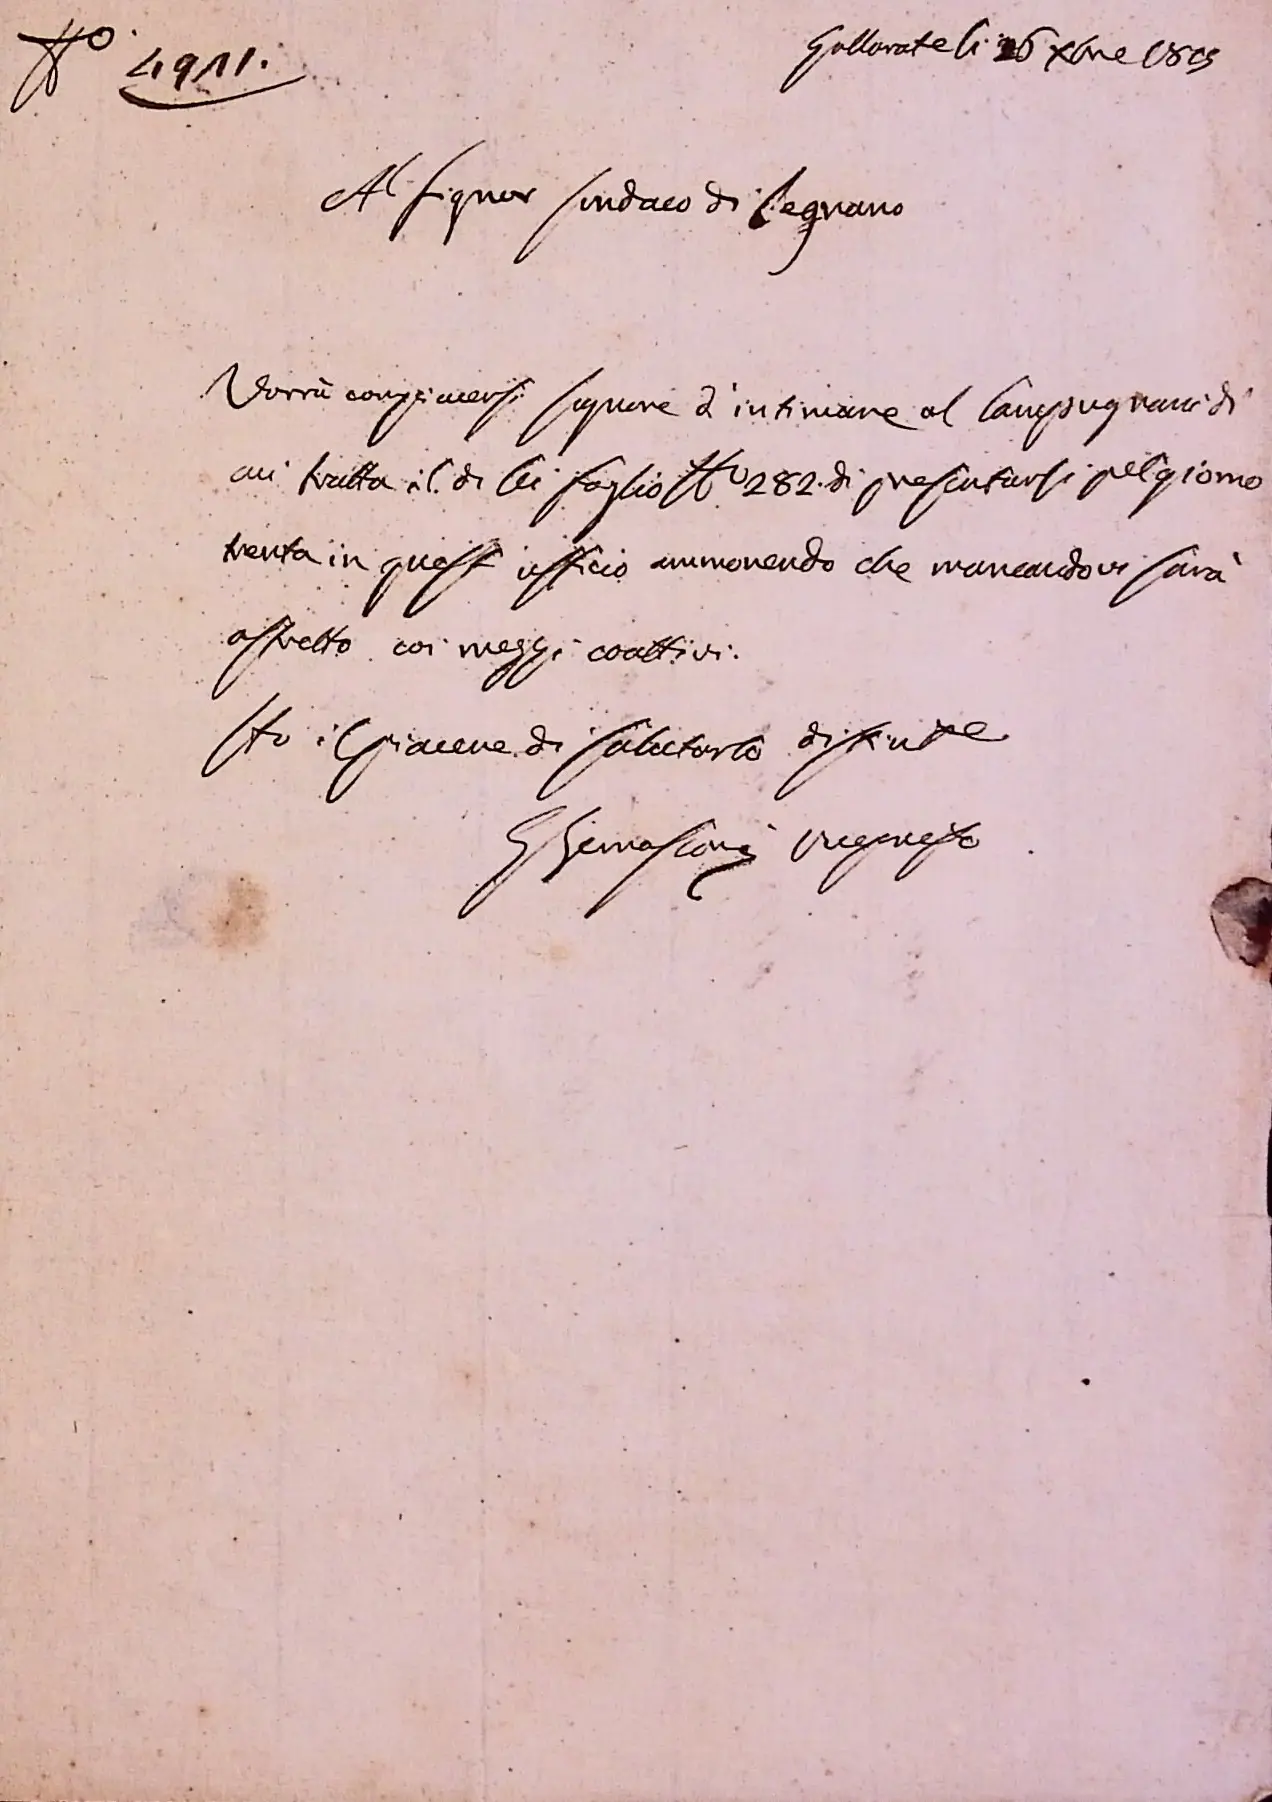 N.o 4911.
Gallarate li 26 Xbre 1805
Al Signor Sindaco di Legnano
Vorrà compiacersi Signore d'intimare al Lampugnani di
cui tratta il di lei foglio N.o 282. di presentarsi pel giorno
trenta in quest'ufficio ammonendo che mancandovi sarà
astretto coi mezzi coattivi.
Ho il piacere di salutarlo distinte